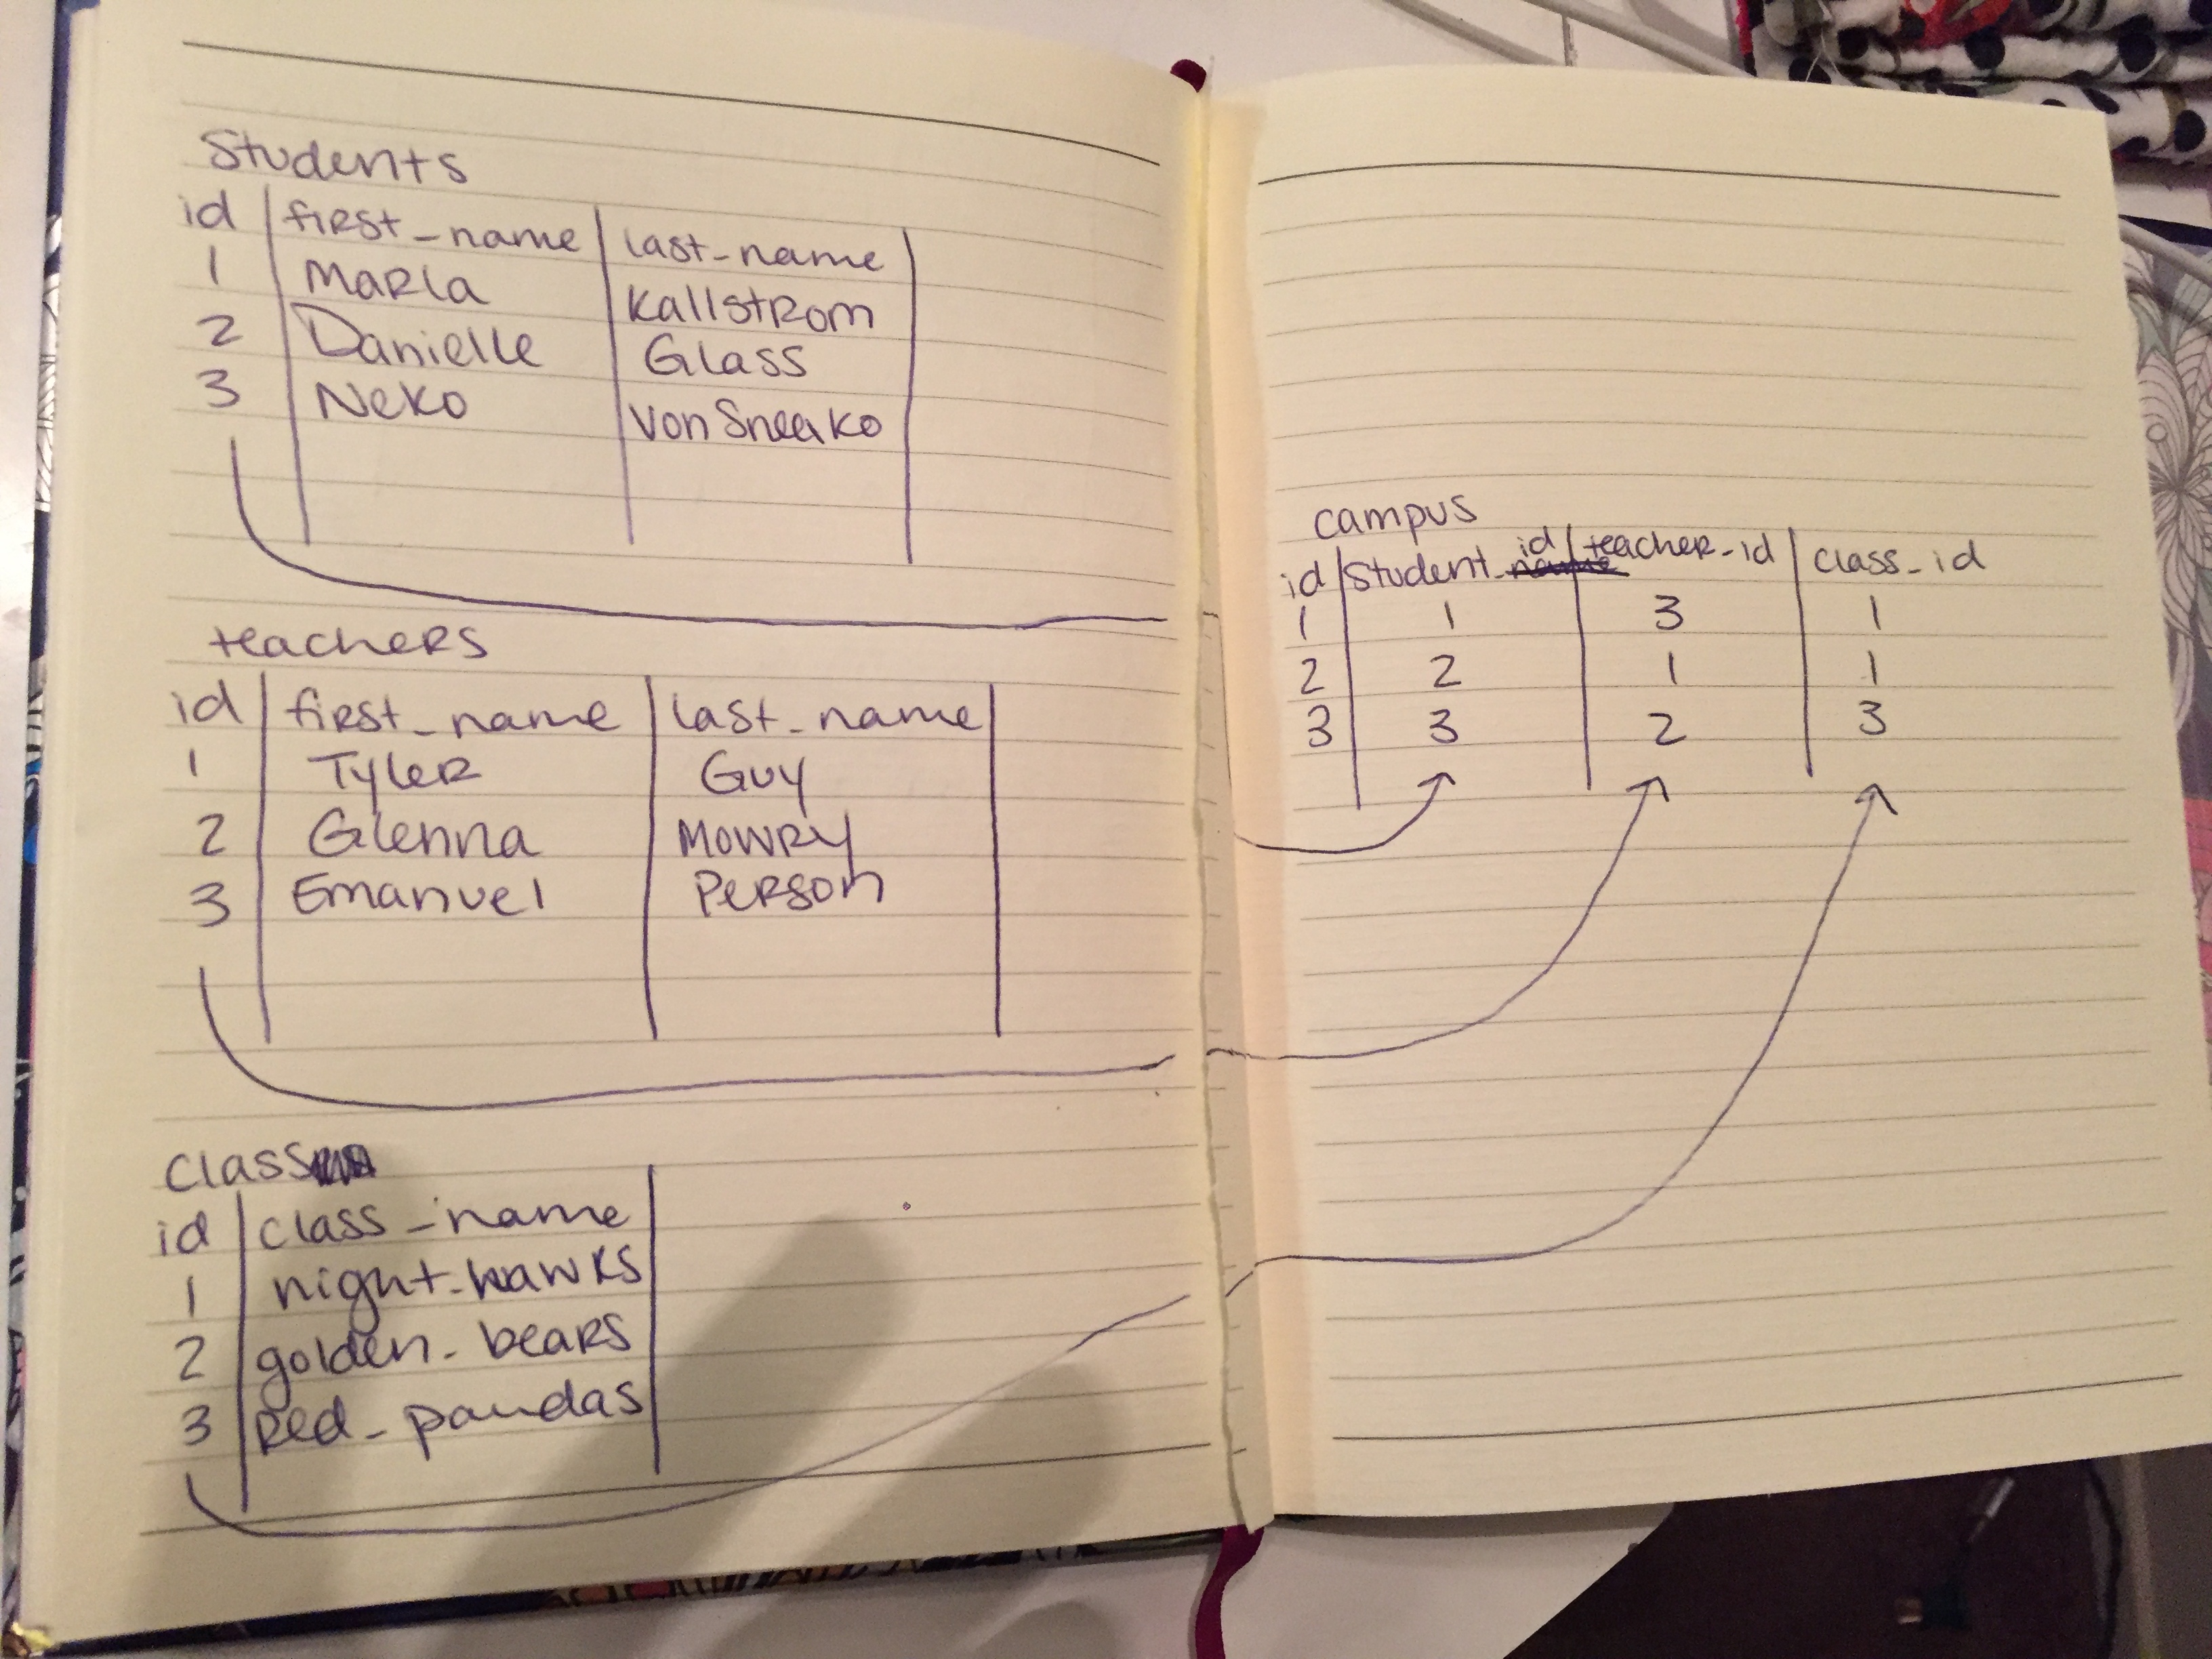 Students
id first_name last_name
1 Marla Kallstrom
2 Danielle Glass
3 Neko Von Sneako
teachers
id first_name last_name
1 Tyler Guy
2 Glenna Mowry
3 Emanuel Person
Class
id class_name
1 night_hawks
2 golden_bears
3 red_pandas
campus
id student_id teacher_id class_id
1 1 3 1
2 2 1 1
3 3 2 3